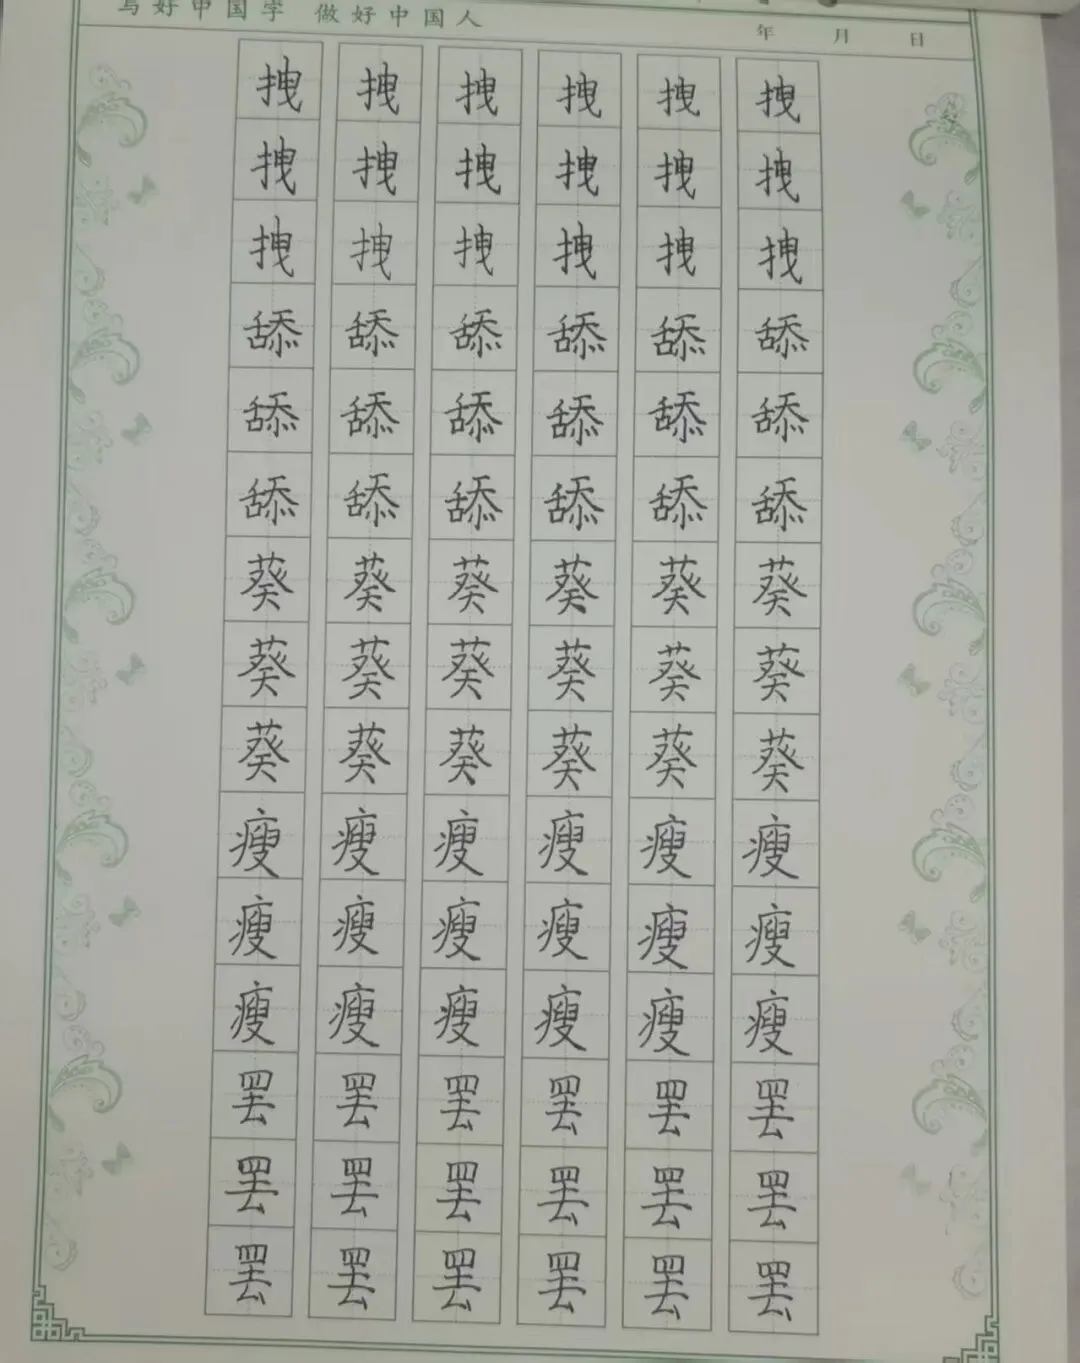 写好中国字 做好中国人
年 月 日
拽 拽 拽 拽 拽 拽
拽 拽 拽 拽 拽 拽
拽 拽 拽 拽 拽 拽
舔 舔 舔 舔 舔 舔
舔 舔 舔 舔 舔 舔
舔 舔 舔 舔 舔 舔
葵 葵 葵 葵 葵 葵
葵 葵 葵 葵 葵 葵
葵 葵 葵 葵 葵 葵
瘦 瘦 瘦 瘦 瘦 瘦
瘦 瘦 瘦 瘦 瘦 瘦
瘦 瘦 瘦 瘦 瘦 瘦
罢 罢 罢 罢 罢 罢
罢 罢 罢 罢 罢 罢
罢 罢 罢 罢 罢 罢